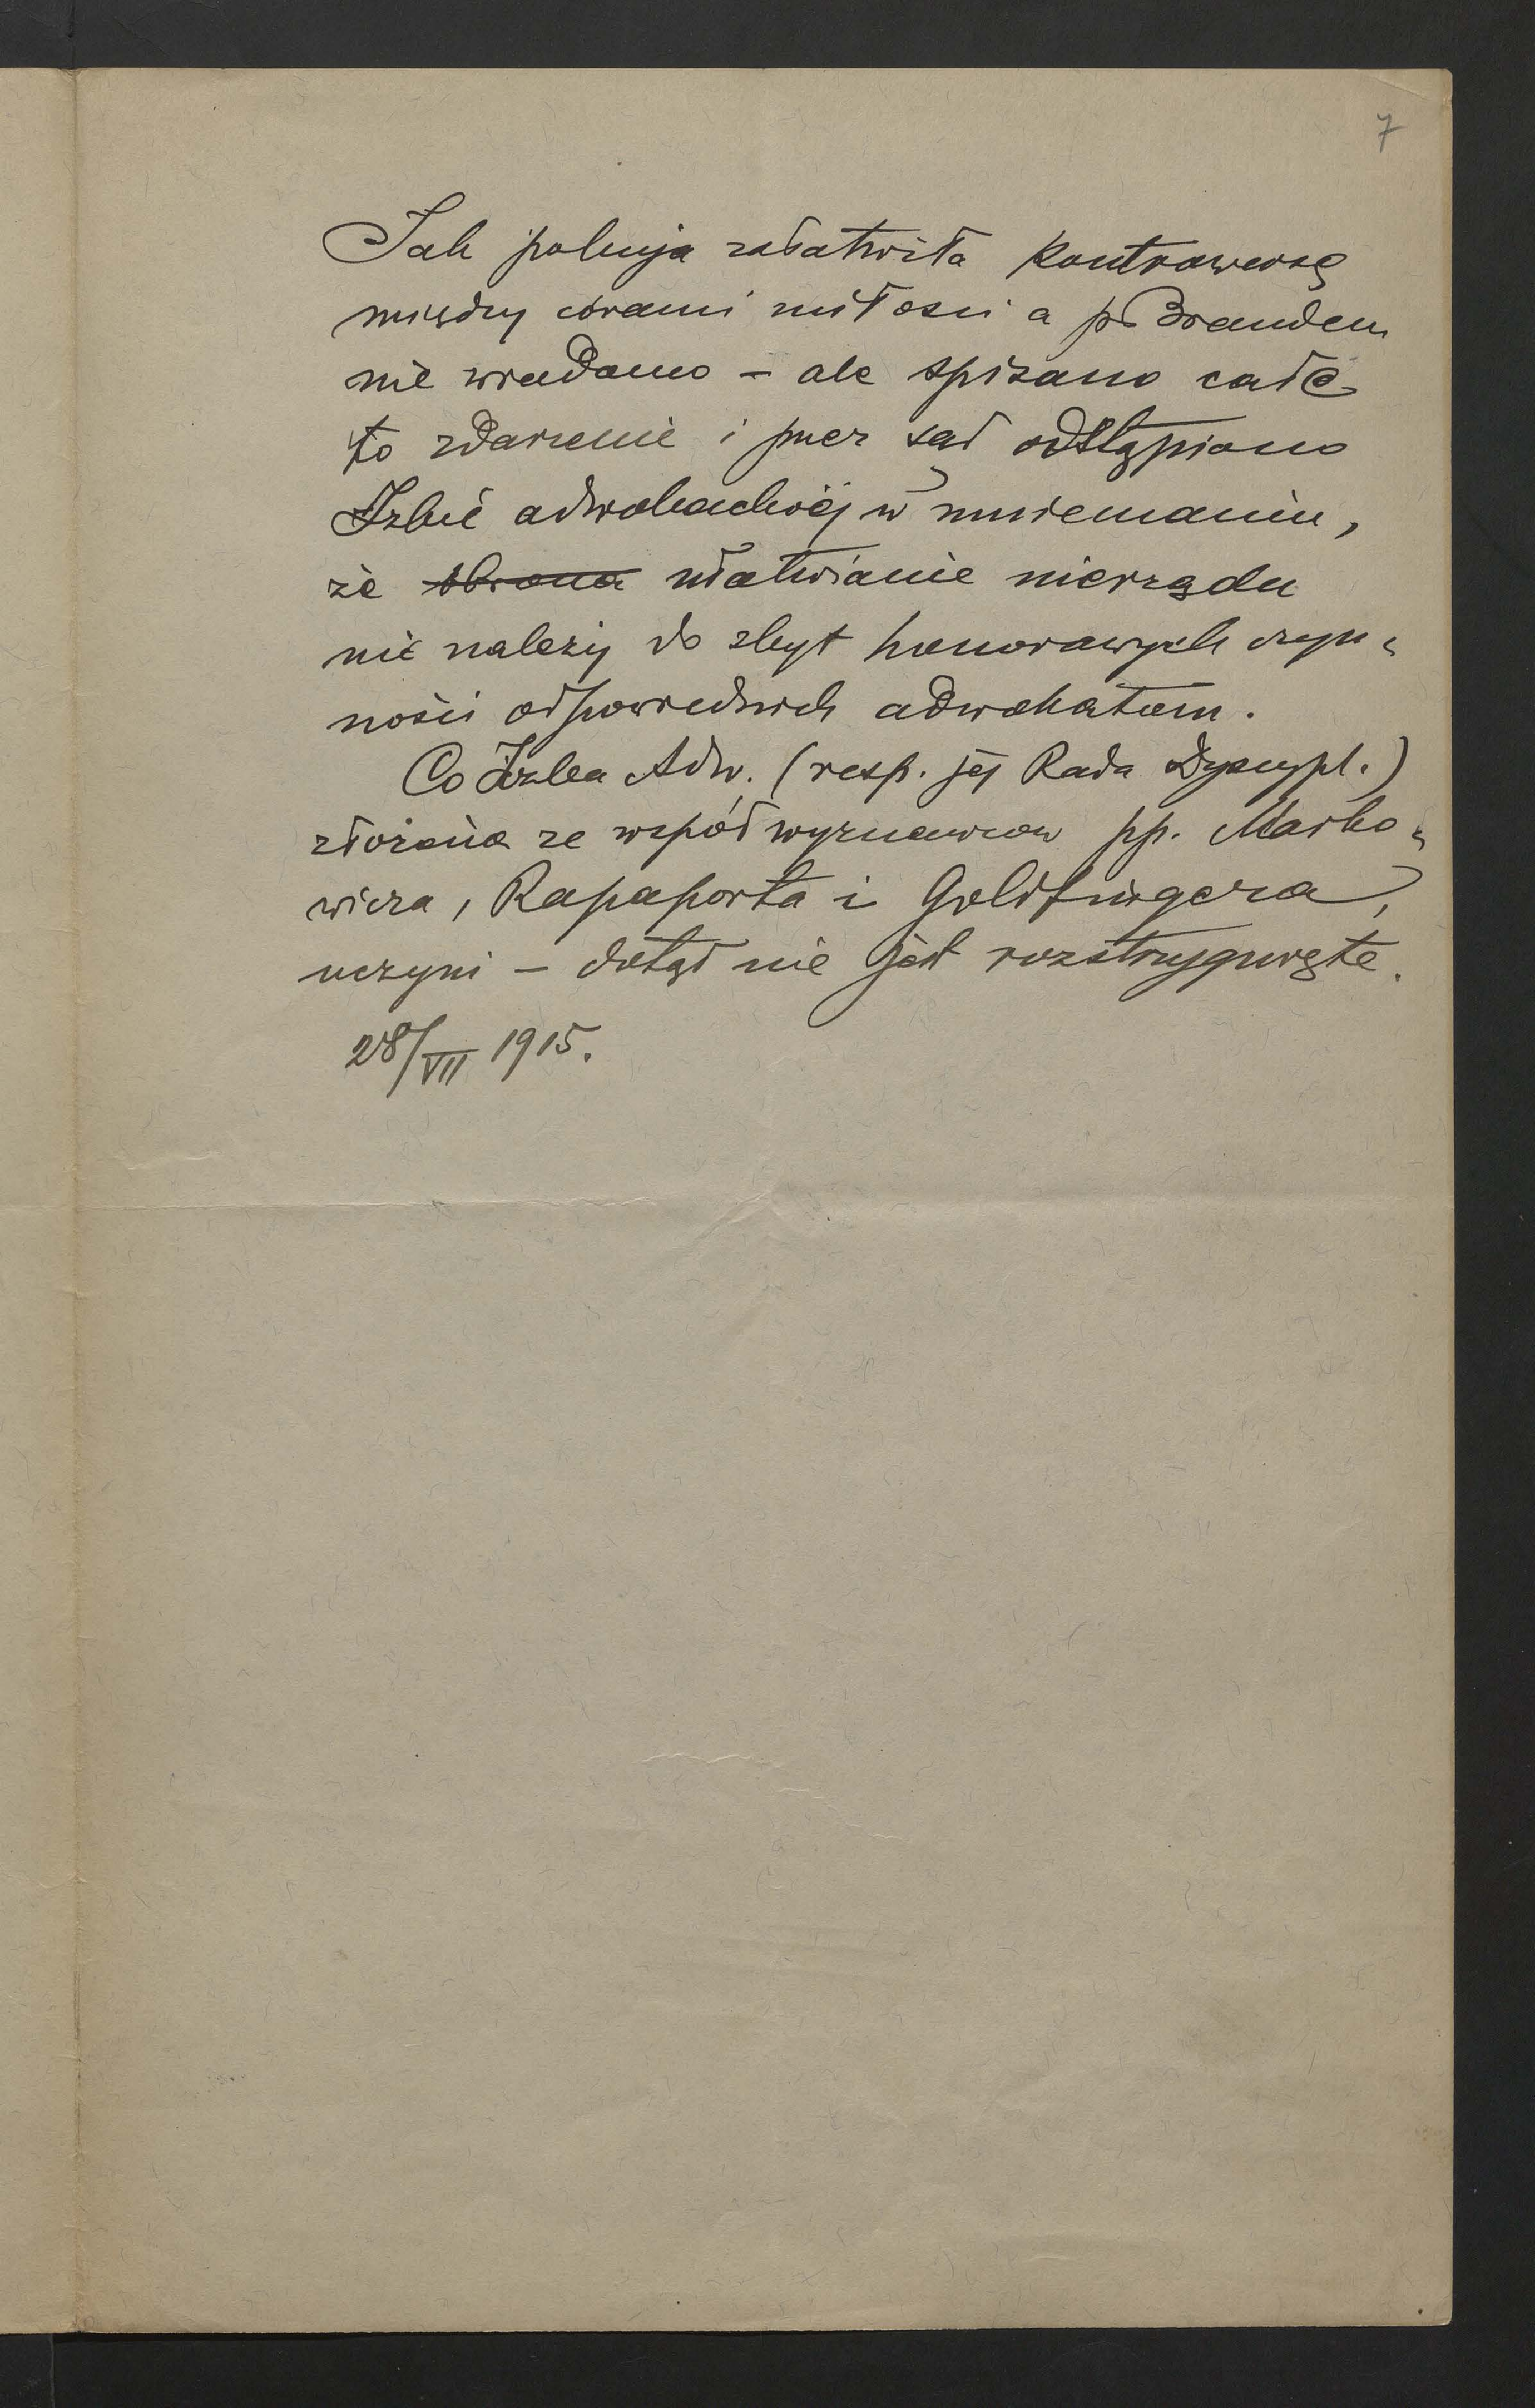 7
Jak policja załatwiła kontrowersę
między córami miłości a p. Brandem
nie wiadomo – ale spisano całe
to zdarzenie i przez sąd odstąpiono
Izbie adwokackiej w mniemaniu,
że obrona ułatwianie nierządu
nie należy do zbyt honorowych czyn-
ności odpowiednich adwokatom.
Co Izba Adw. (resp. jej Rada Dyscypl.)
złożona ze współwyznawców pp. Marko-
wicza, Rapaporta i Goldfingera,
uczyni – dotąd nie jest rozstrzygnięte.
28/VII 1915.